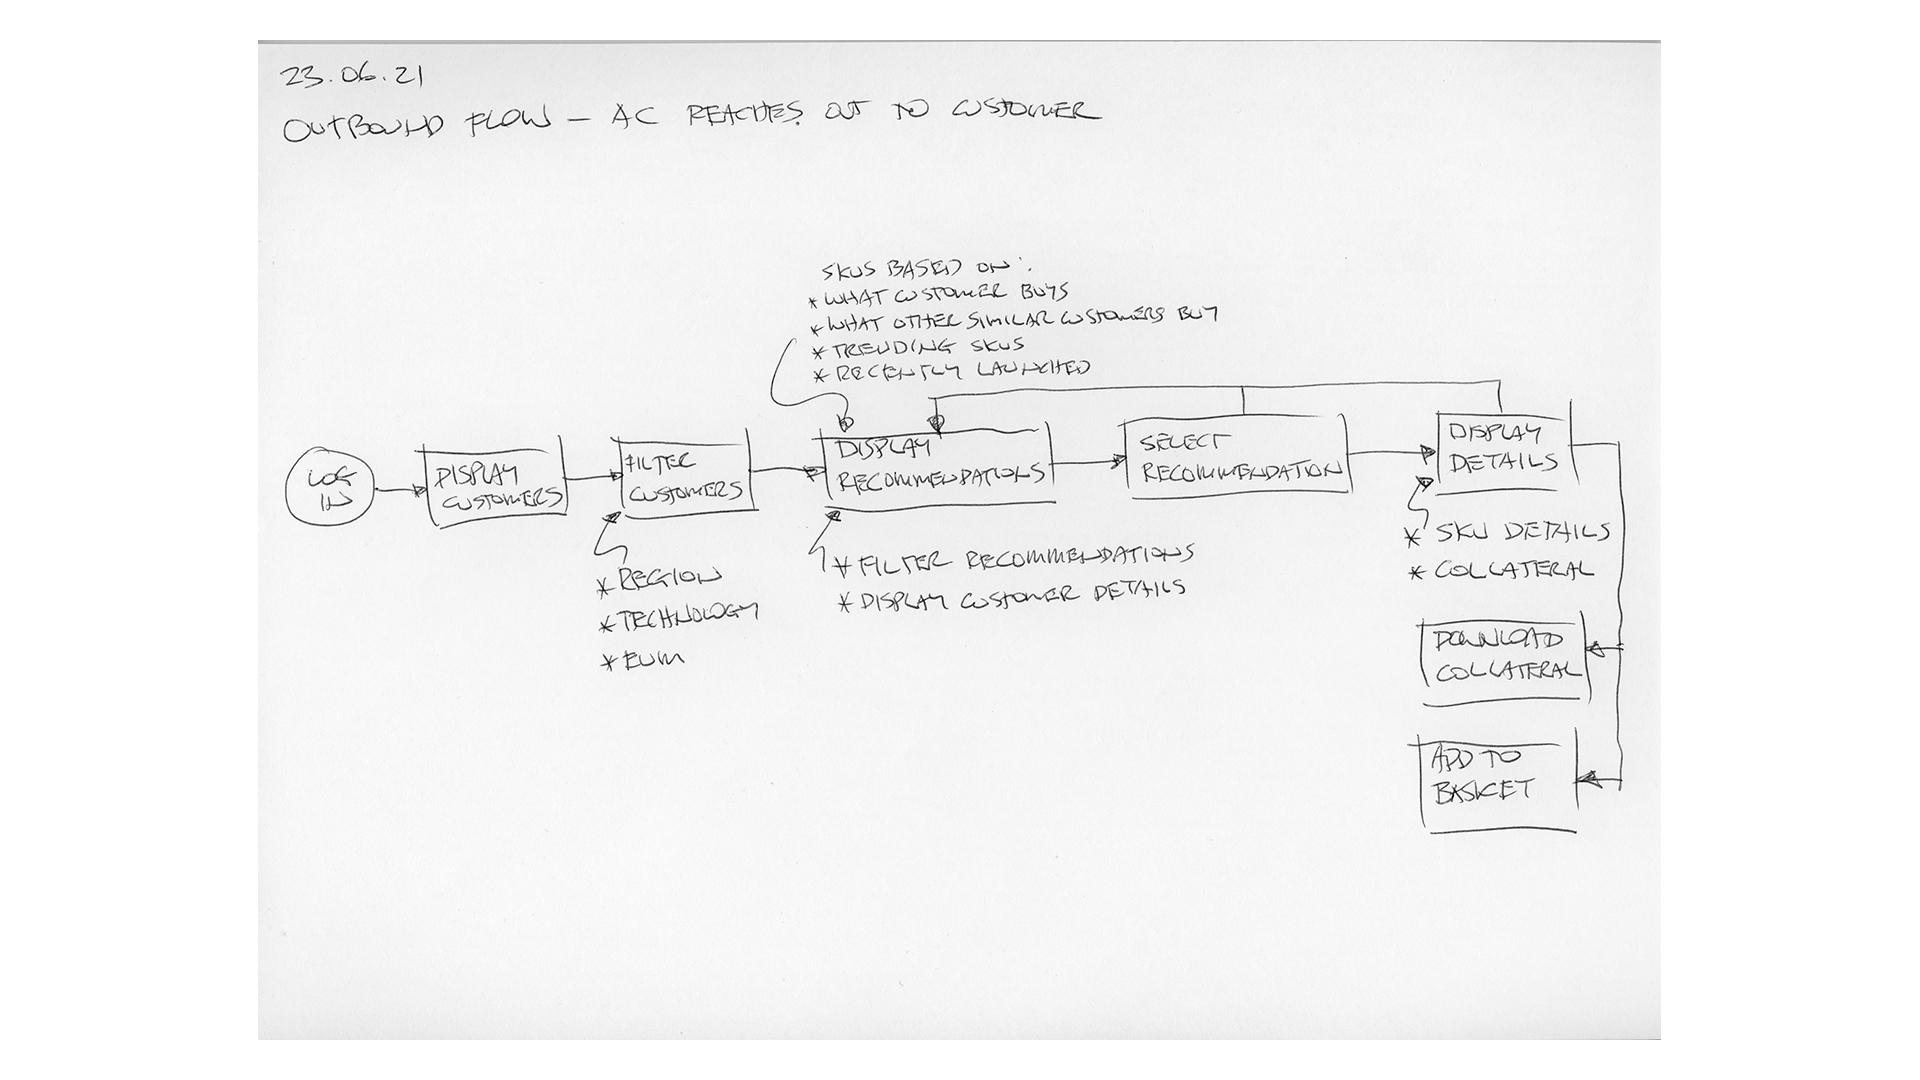 23.06.21
OUTBOUND FLOW – AC REACHES OUT TO CUSTOMER
SKUS BASED ON:
* WHAT CUSTOMER BUYS
* WHAT OTHER SIMILAR CUSTOMERS BUY
* TRENDING SKUS
* RECENTLY LAUNCHED
LOG
IN
DISPLAY
CUSTOMERS
FILTER
CUSTOMERS
* REGION
* TECHNOLOGY
DISPLAY
RECOMMENDATIONS
* FILTER RECOMMENDATIONS
* DISPLAY CUSTOMER DETAILS
SELECT
RECOMMENDATION
DISPLAY
DETAILS
* SKU DETAILS
* COLLATERAL
DOWNLOAD
COLLATERAL
ADD TO
BASKET